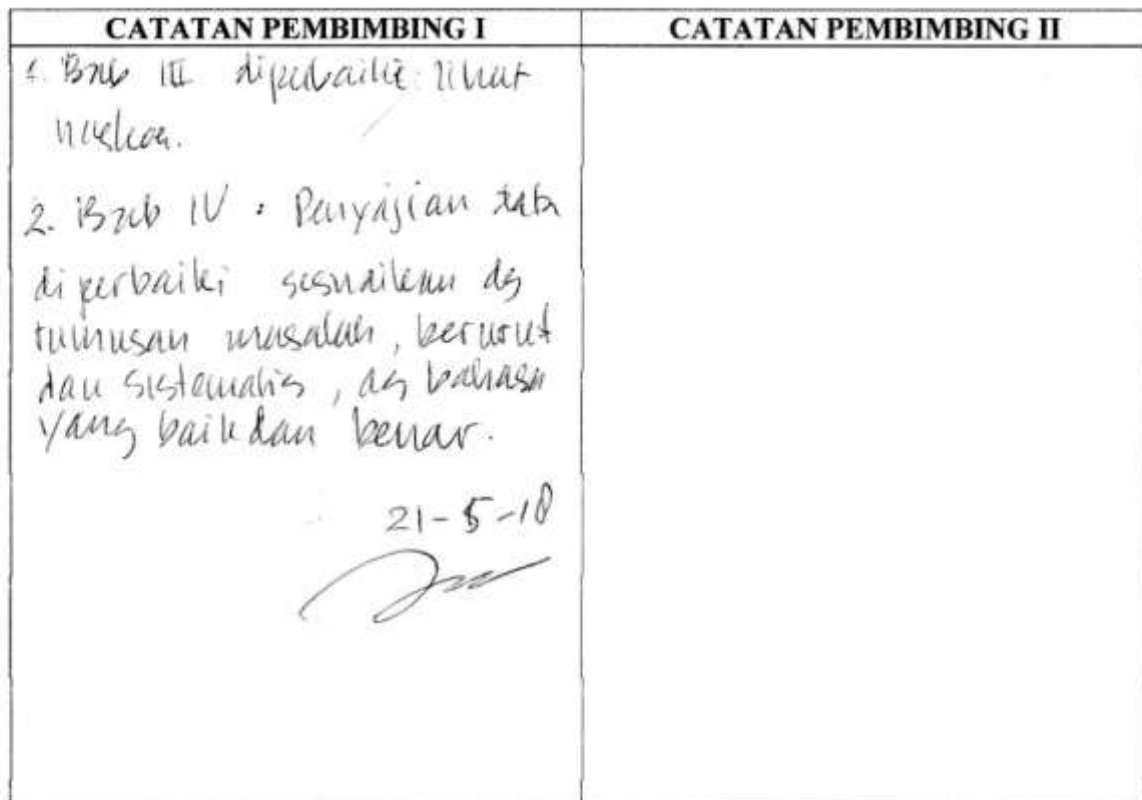 CATATAN PEMBIMBING I
CATATAN PEMBIMBING II
1. Bab III diperbaiki: lihat
naskah.
2. Bab IV : Penyajian data
diperbaiki sesuaikan dg
rumusan masalah, berurut
dan sistematis, dg bahasa
yang baik dan benar.
21-5-18